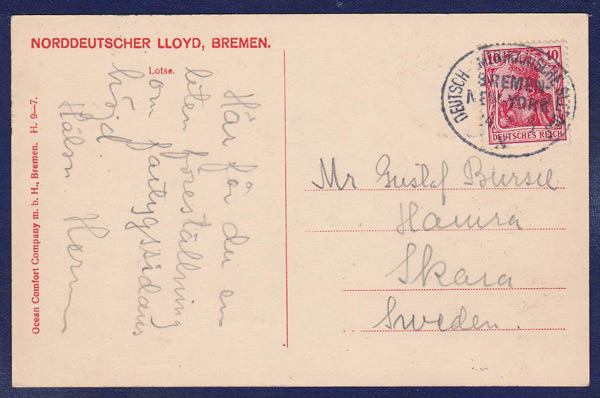 NORDDEUTSCHER LLOYD, BREMEN.
Lotse.
Här får du en
liten föreställning
om fartygssidans
höjd
Hälsn Herm
Ocean Comfort Company m. b. H., Bremen. H. 9—7.
10 10
DEUTSCHES REICH
DEUTSCH
BREMEN-
NEW-YORK
Mr Gustaf
Hamra
Skara
Sweden.